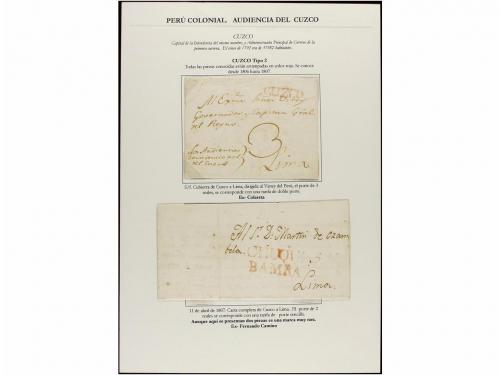 PERÚ COLONIAL. AUDIENCIA DEL CUZCO
CUZCO
Capital de la Intendencia del mismo nombre, y Administración Principal de Correos de la
primera carrera. El censo de 1792 era de 31982 habitantes.
CUZCO Tipo 2
Todas las piezas conocidas están estampadas en color rojo. Se conoce
desde 1806 hasta 1807.
CUZCO
Al Exmo Señor Virrey
Governador y Capitan Gral
del Reyno
3
La Audiencia
del Cuzco
Lima
S/f. Cubierta de Cuzco a Lima, dirigida al Virrey del Perú, el porte de 3
reales, se corresponde con una tarifa de doble porte.
Ex- Colareta
Al Sr. D. Martin de Ozam
bela.
BAMBA
Lima.
11 de abril de 1807. Carta completa de Cuzco a Lima. El porte de 2
reales se corresponde con una tarifa de porte sencillo.
Aunque aquí se presentan dos piezas es una marca muy rara.
Ex- Fernando Camino